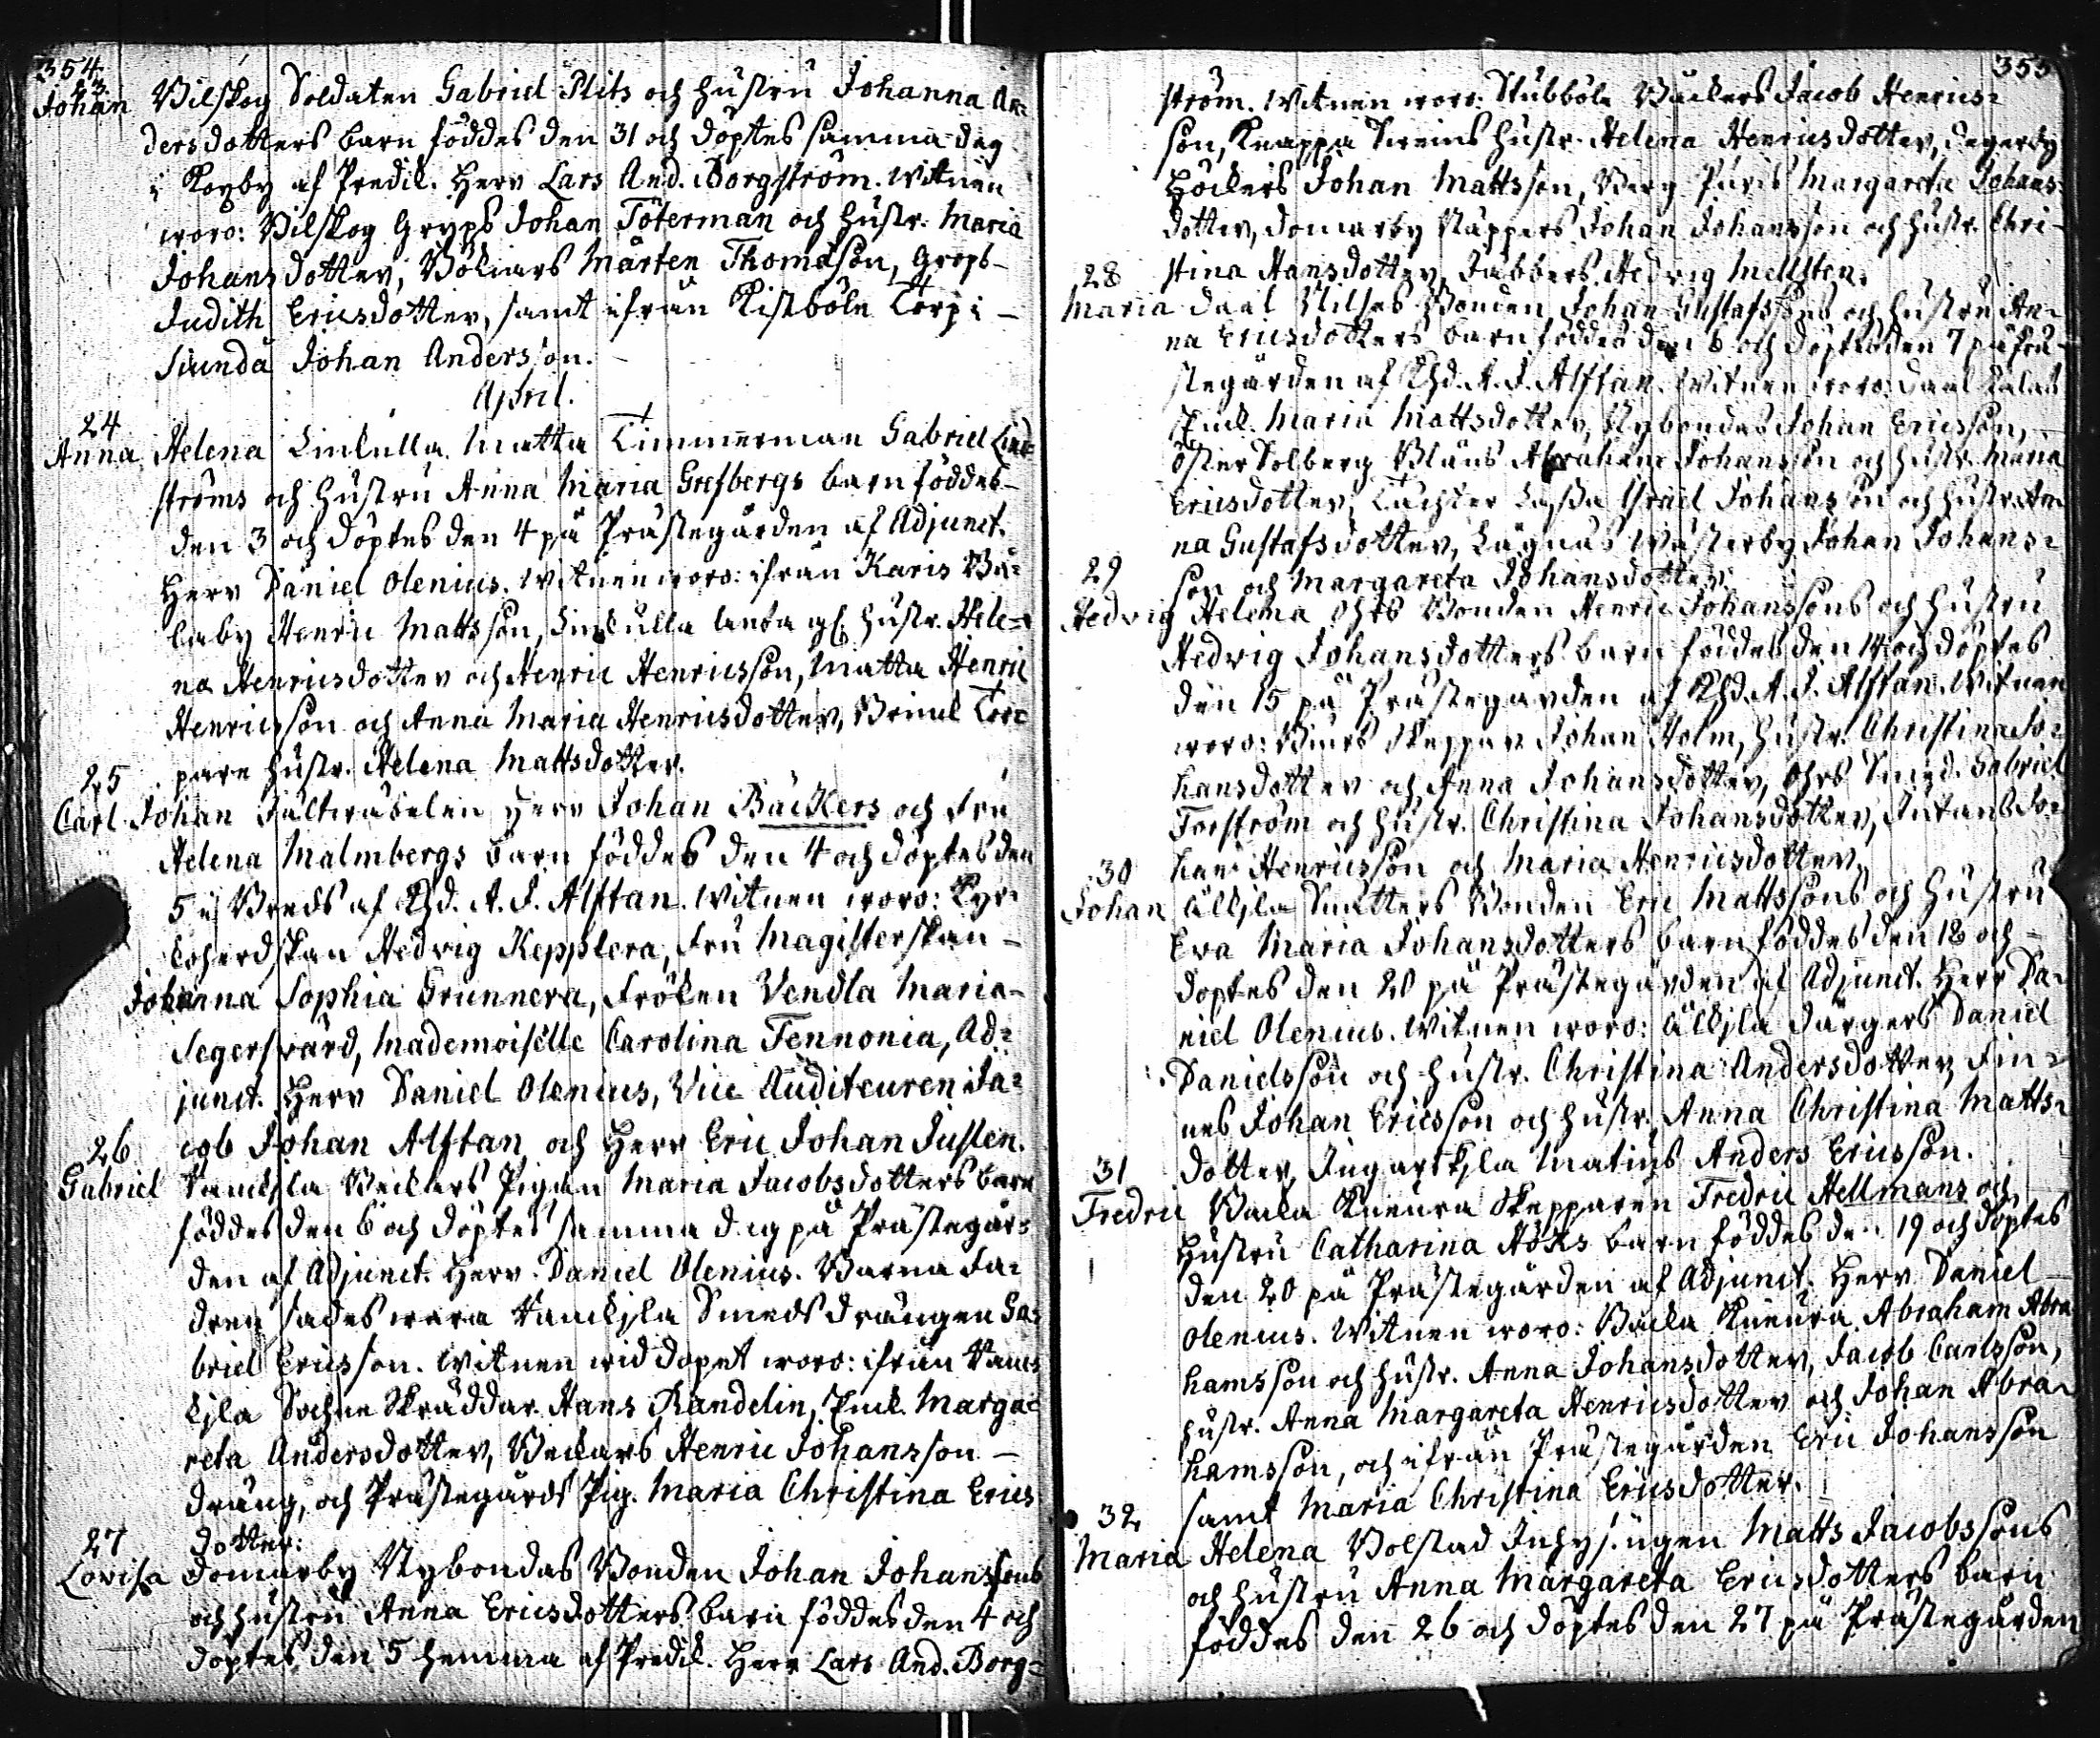 354.
23.
Johan Vilskog Soldaten Gabriel Plits och hustru Johanna An=
dersdotters barn föddes den 31 och döptes samma dag
i Koxby af Predik. Herr Lars And. Borgström. Witnen
woro: Vilskog Gryps Johan Töterman och hustr. Maria
Johansdotter, Bölnars Mårten Thomasson, Grops-
Judith Ericsdotter, samt ifrån Kistböle Torp i
Siunda Johan Andersson.
April.
24
Anna Helena Linkulla Matta Timmerman Gabriel Lind=
ströms och hustru Anna Maria Grefbergs barn föddes
den 3 och döptes den 4 på Prästegården af Adjunct.
Herr Daniel Olenius. Witnen woro: ifrån Karis Bä=
leby Henric Mattsson, Linkulla hustr. Hele=
na Henricsdotter och Henric Henricsson, Matta Henric
Henricsson och Anna Maria Henricsdotter, Tor=
pare hustr. Helena Mattsdotter.
25
Carl Johan Fältwäbelen Herr Johan Bäckers och Fru
Helena Malmbergs barn föddes den 4 och döptes den
5 i af Khd. A. J. Alftan. Witnen woro: Kyr=
koherdskan Hedvig Kepplera, Fru Magisterskan
Johanna Sophia Brunnera, Fröken Vendla Maria
Segersvärd, Mademoiselle Carolina Fennonia, Ad=
junct. Herr Daniel Olenius, Vice Auditeuren Ja=
cob Johan Alftan och Herr Eric Johan Juslen.
26
Gabriel Pigan Maria Jacobsdotters barn
föddes den 6 och döptes samma dag på Prästegår=
den af Adjunct. Herr Daniel Olenius. Barna fa=
dren sades wara Smeds drängen Ga=
briel Ericsson. Witnen wid dopet woro: ifrån
Sochne Skräddar Hans Randelin, Marga=
reta Andersdotter, Henric Johansson
dräng, och Prästegårds Pig. Maria Christina Erics
dotter.
27
Lovisa Domarby Nybondas Bonden Johan Johanssons
och hustru Anna Ericsdotters barn föddes den 4 och
döptes den 5 hemma af Predik. Herr Lars And. Borg=
355
ström. Witnen woro: Stubböle Bäckers Jacob Henrics=
son, Knappa hustr. Helena Henricsdotter, Degerby
Höckers Johan Mattsson, Margareta Johans=
dotter, Domarby Näppers Johan Johansson och hustr. Chri-
stina Hansdotter, Jabbers Hedvig Mellsten.
28
Maria Daal Nilses Bonden Johan Gustafssons och hustru An=
na Ericsdotters barn föddes den 6 och döptes den 7 på Prä-
stegården af Khd. A. J. Alftan. Witnen woro: Daal
Maria Mattsdotter, Nybondas Johan Ericsson,
Öster Solberg Blåus Abraham Johansson och hustr. Maria
Ericsdotter, Lassa Israel Johansson och hustr. An=
na Gustafsdotter, Lågnäs Wästerby Johan Johans=
son och Margareta Johansdotter.
29
Hedvig Helena Ohrs Bonden Henric Johanssons och hustru
Hedvig Johansdotters barn föddes den 14 och döptes
den 15 på Prästegården af Khd. A. J. Alftan. Witnen
woro: Skeppar Johan Holm, hustr. Christina Jo=
hansdotter och Anna Johansdotter, Ohrs Smed. Gabriel
Torström och hustr. Christina Johansdotter, Jo=
han Henricsson och Maria Henricsdotter.
30
Johan Bonden Eric Mattssons och hustru
Eva Maria Johansdotters barn föddes den 18 och
döptes den 20 på Prästegården af Adjunct. Herr Da=
niel Olenius. Witnen woro: Dårgers Daniel
Danielsson och hustr. Christina Andersdotter, Fin=
nes Johan Ericsson och hustr. Anna Christina Matts=
dotter, Ingarskila Matius Anders Ericsson.
31
Fredric Backa Knéura Skepparen Fredric Hellmans och
hustru Catharina Höks barn föddes den 19 och döptes
den 20 på Prästegården af Adjunct. Herr Daniel
Olenius. Witnen woro: Backa Knéura Abraham Abra
hamsson och hustr. Anna Johansdotter, Jacob Carlsson,
hustr. Anna Margareta Henricsdotter och Johan Abra=
hamsson, och ifrån Prästegården Eric Johansson
samt Maria Christina Ericsdotter.
32
Maria Helena Bolstad Inhysingen Matts Jacobssons
och hustru Anna Margareta Ericsdotters barn
föddes den 26 och döptes den 27 på Prästegården